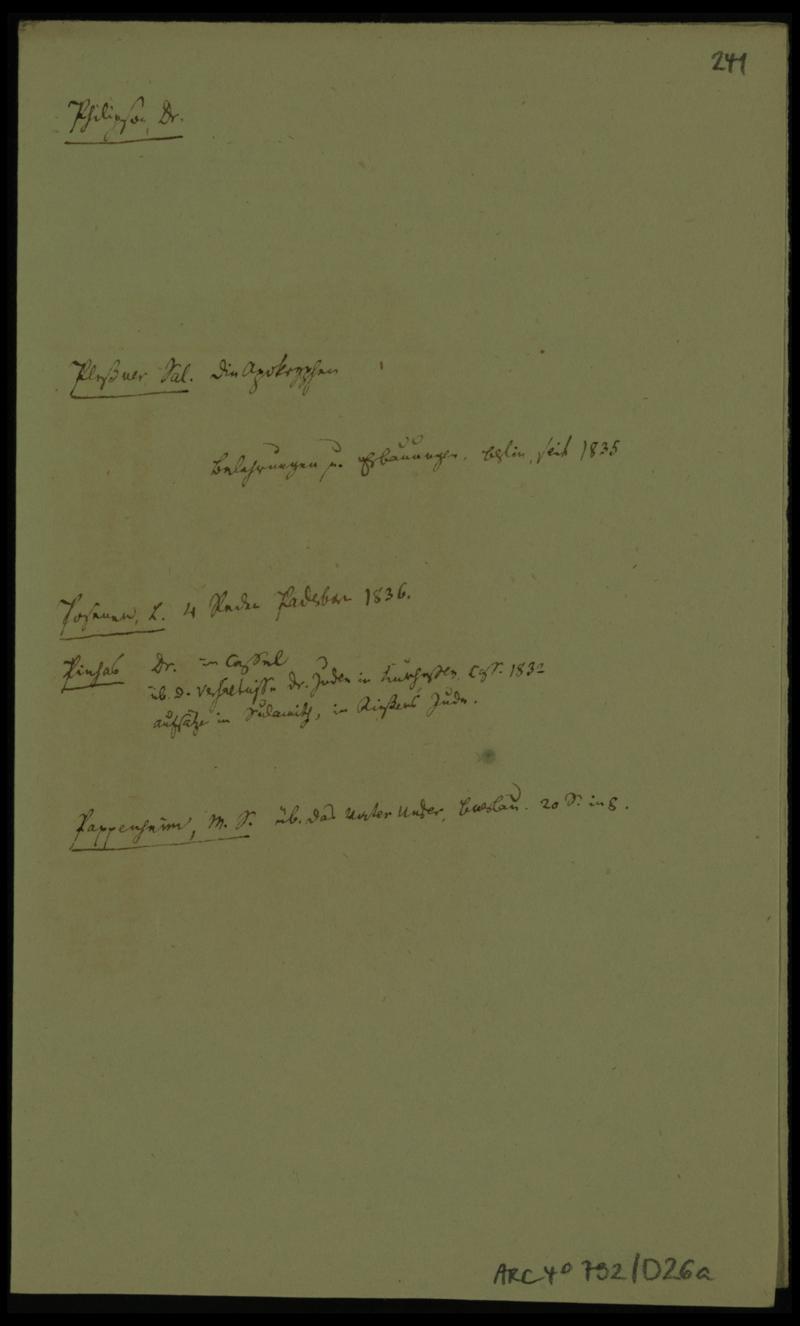 241
Philipson, Dr.
Pleßner Sal. Die Apokryphen
Belehrungen u. Erbauungen. Berlin, seit 1835
L. 4 Reden Paderborn 1836.
Pinhas Dr. in Cassel
üb. d. Verhältnisse der Juden in Kurhessen Cass. 1832
aufsätze in Sulamith, in Rießers Jude.
Pappenheim, M. S. üb. das Breslau. 20 S. in 8.
ARC 4° 792/D26a